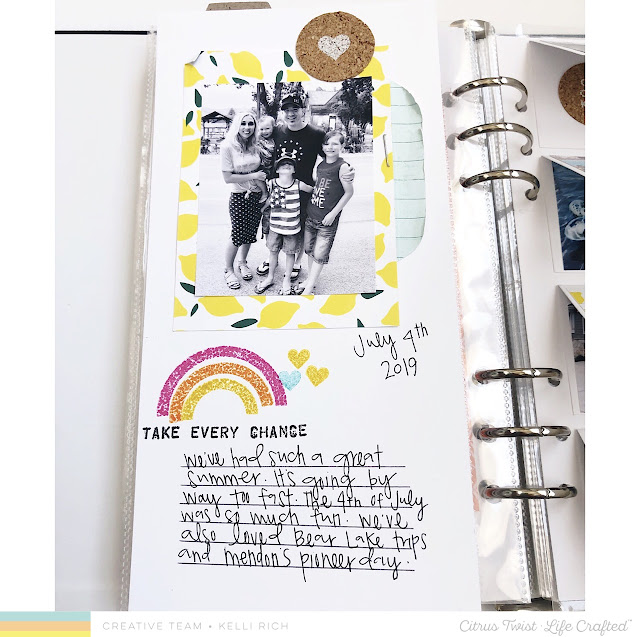 July 4th
2019
TAKE EVERY CHANCE
we've had such a great
summer. It's going by
way too fast. The 4th of July
was so much fun. We've
also loved Bear Lake trips
and mendon's pioneer day.
CREATIVE TEAM • KELLI RICH
Citrus Twist · Life Crafted™